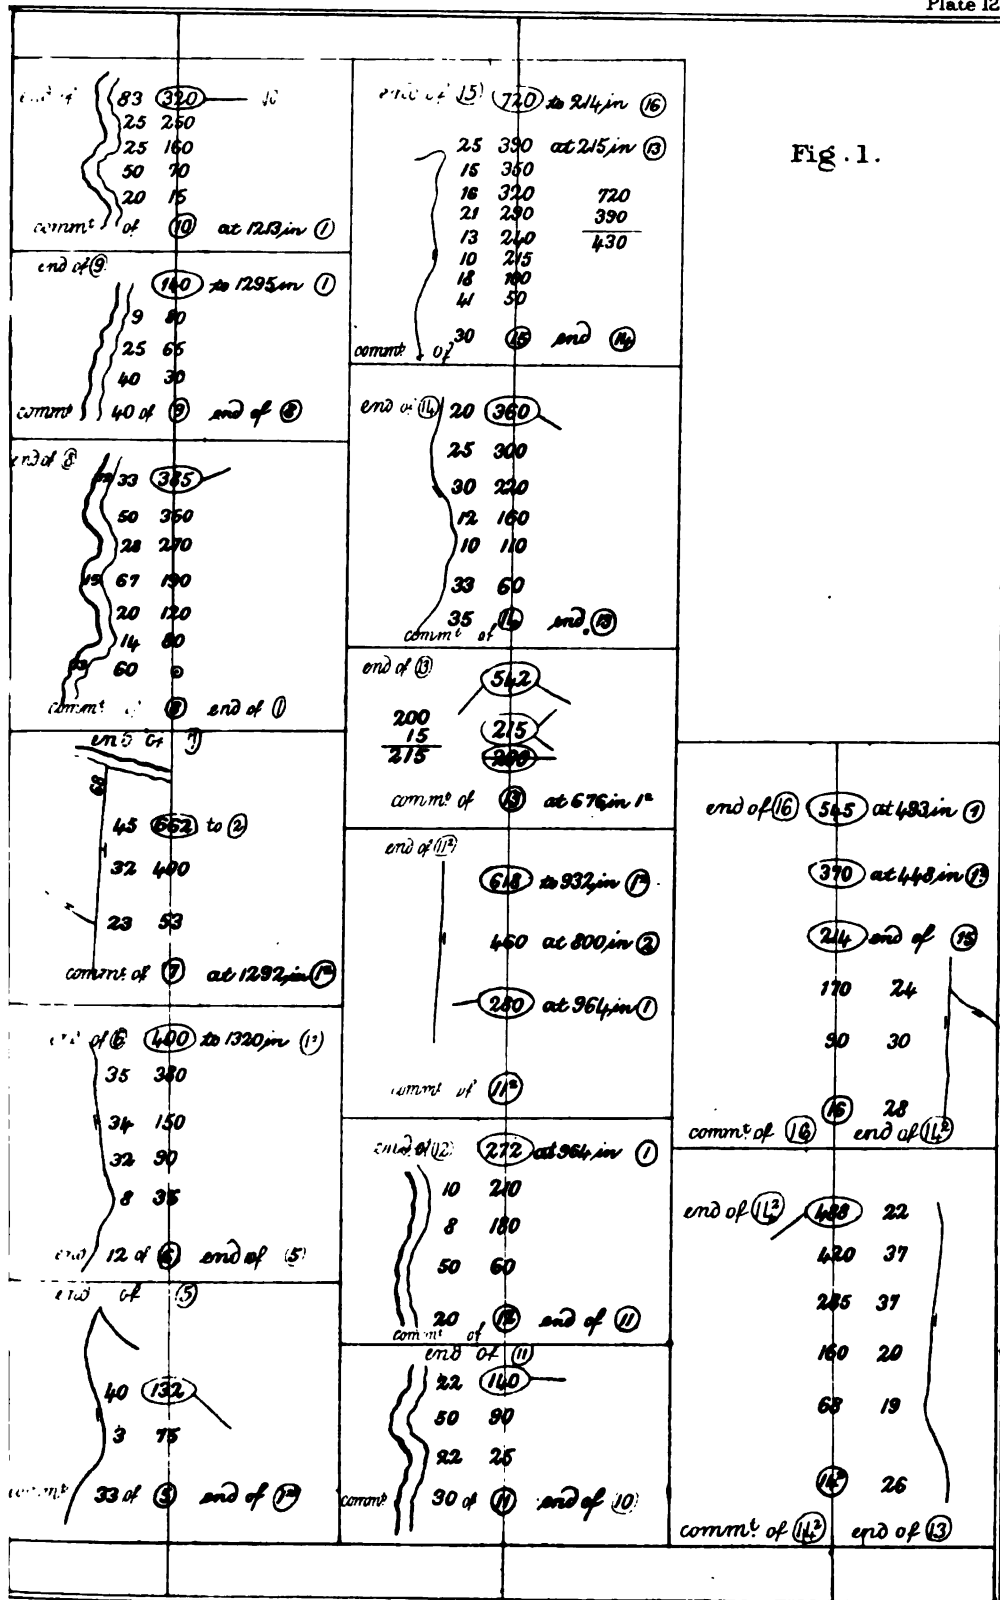 Plate 12
Fig. 1.
83 320
25 250
25 160
50 70
20 15
commt of 10 at 1213 in 1
end of 9
140 to 1295 in 1
9 80
25 65
40 30
commt 40 of 9 end of 8
end of 8
33 385
50 350
28 270
15 67 190
20 120
14 80
60
commt 8 end of 1
end of 7
68
45 662 to 2
32 400
23 53
commt of 7 at 1292 in 1²
end of 6 400 to 1320 in (1²)
35 380
34 150
32 90
8 35
end 12 of 6 end of (5)
end of 5
40 132
3 75
commt 33 of 5 end of 1²
end of 15 720 to 214 in 16
25 390 at 215 in 13
15 350
16 320 720
21 290 390
13 240 430
10 215
18 100
41 50
30 15 end 14
commt of
end of 14 20 360
25 300
30 220
12 160
10 110
33 60
35 14 end 13
commt of
end of 13
542
200
15 215
215 200
commt of 13 at 676 in 1²
end of 11²
618 to 932 in 1²
460 at 800 in 2
280 at 964 in 1
commt of 11²
end of 12 272 at 964 in 1
10 210
8 180
50 60
20 12 end of 11
commt of
end of 11
22 140
50 90
22 25
commt 30 of 11 end of 10
end of 16 545 at 493 in 1
370 at 448 in 1²
214 end of 15
170 24
90 30
16 28
commt of 16 end of 14²
end of 14² 488 22
420 37
285 37
160 20
68 19
14² 26
commt of 14² end of 13